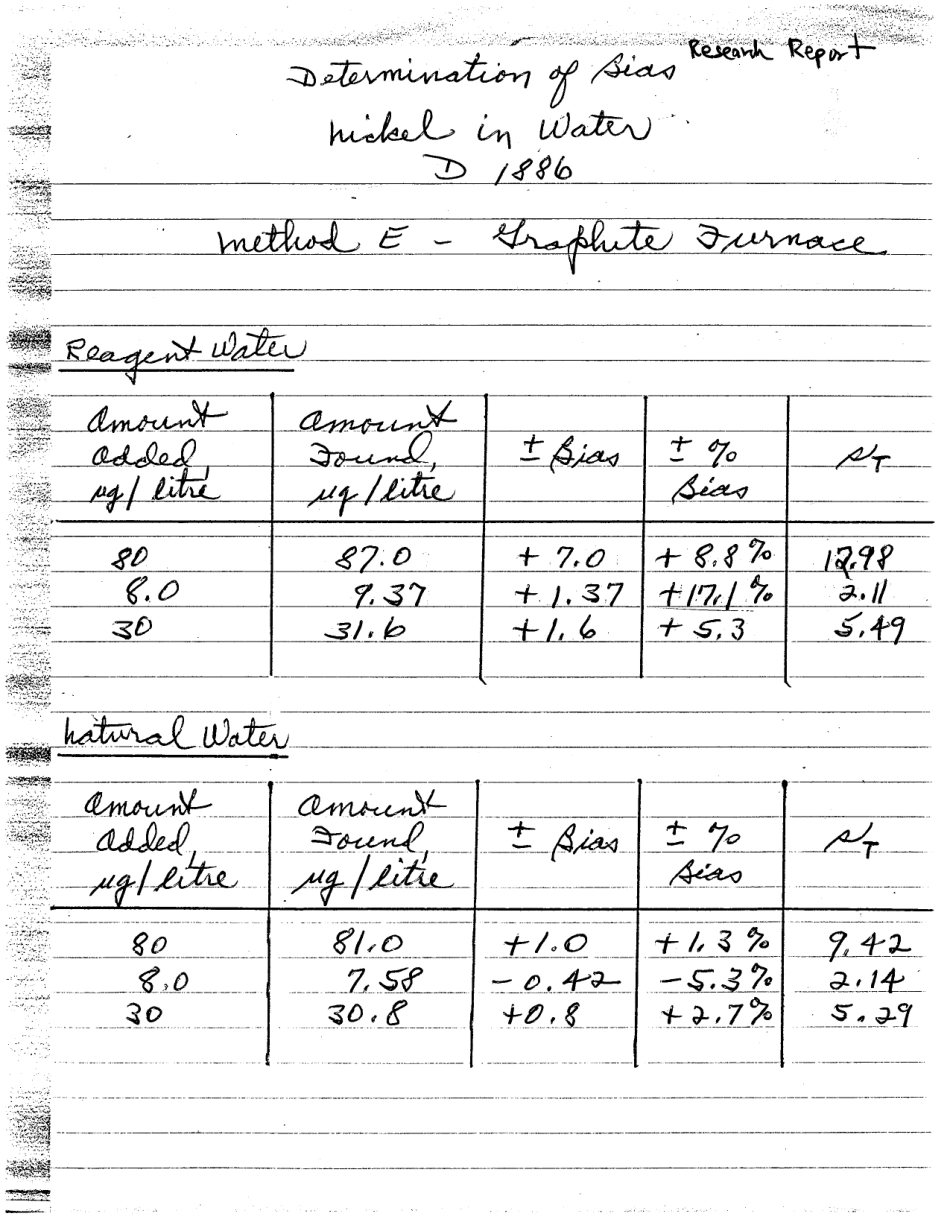 Research Report
Determination of Bias
Nickel in Water
D 1886
Method E - Graphite Furnace
Reagent Water
Amount Added, µg/litre | Amount Found, µg/litre | ± Bias | ± % Bias | s_T
80 | 87.0 | + 7.0 | + 8.8% | 12.98
8.0 | 9.37 | + 1.37 | +17.1% | 2.11
30 | 31.6 | +1.6 | + 5.3 | 5.49
Natural Water
Amount Added, µg/litre | Amount Found, µg/litre | ± Bias | ± % Bias | s_T
80 | 81.0 | +1.0 | +1.3% | 9.42
8.0 | 7.58 | - 0.42 | -5.3% | 2.14
30 | 30.8 | +0.8 | +2.7% | 5.29